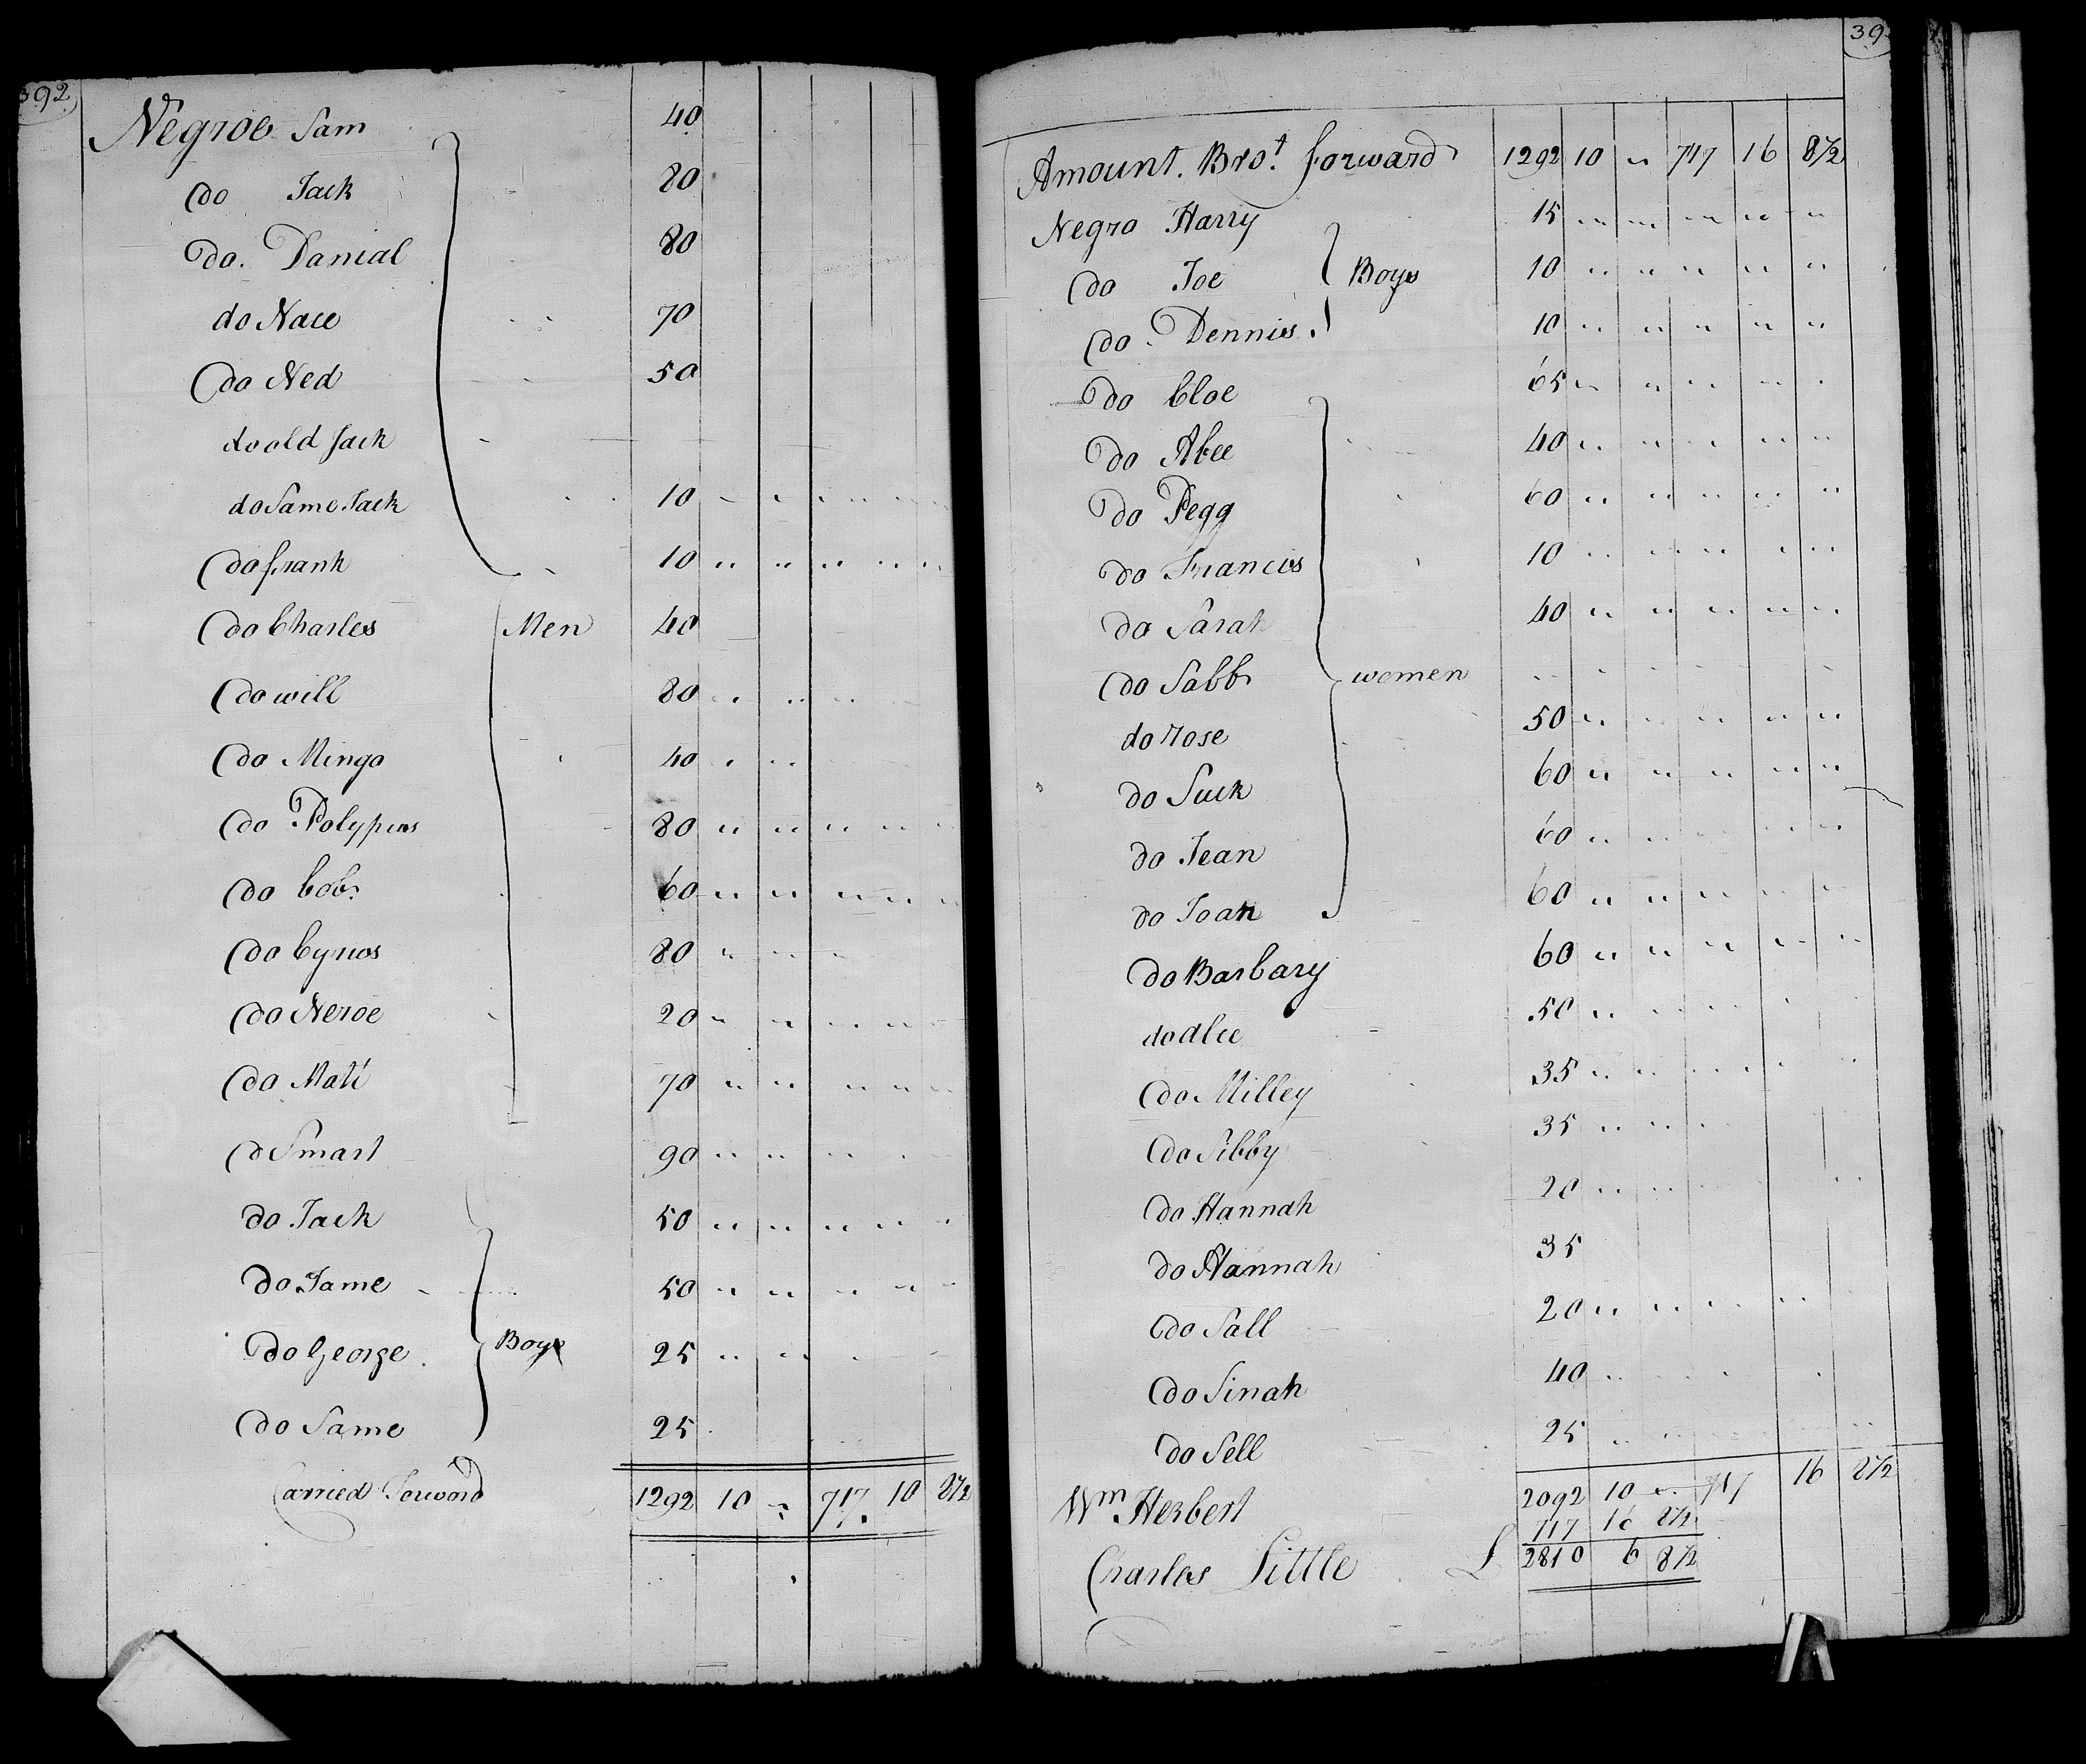 392
Negroe Sam 40
do Jack 80
Do. Danial 80
do Nace 70
do Ned 50
do old Jack
do Same Jack 10
do frank 10
do Charles Men 40
do will 80
do Mingo 40
do Polypus 80
do bob 60
do Cyrus 80
do Neroe 20
do Mati 70
d Smart 90
do Jack 50
do Jame 50
do George Boys 25
do Same 25
Carried Forword 1292 10 " 717. 10 8½
39
Amount. Brot. forward 1292 10 " 717 16 8½
Negro Harry 15 " " " " "
do Joe Boys 10 " " " " "
do Dennis 10 " " " " "
do Cloe 65
do Abee 40
do Pegg 60
do Francis 10
do Sarah 40
do Sabb women
do rose 50
do Suck 60
do Jean 60
do Joan 60
do Barbary 60
do alce 50
do Milley 35
do Sibby 35
do Hannah 20
do Hannah 35
do Sall 20
do Sinah 40
do Sell 25
Wm Herbert 2092 10 " 717 16 8½
717 16 8½
Charles Little £ 2810 6 8½